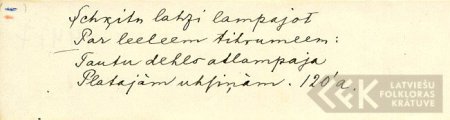 Schķitu latzi lampajot
Par leeleem tihrumeem:
Tautu dehls atlampaja
Platajàm uhsiņàm. 120'a.
LATVIEŠU
FOLKLORAS
KRĀTUVE